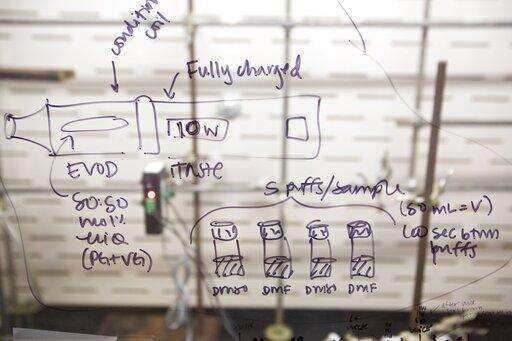 condition
coil
Fully charged
10W
EVOD
iTaste
50:50
mol%
liQ
(PG+VG)
5 puffs/sample
(50 mL=V)
60 sec btwn
puffs
DMSO DMF DMSO DMF